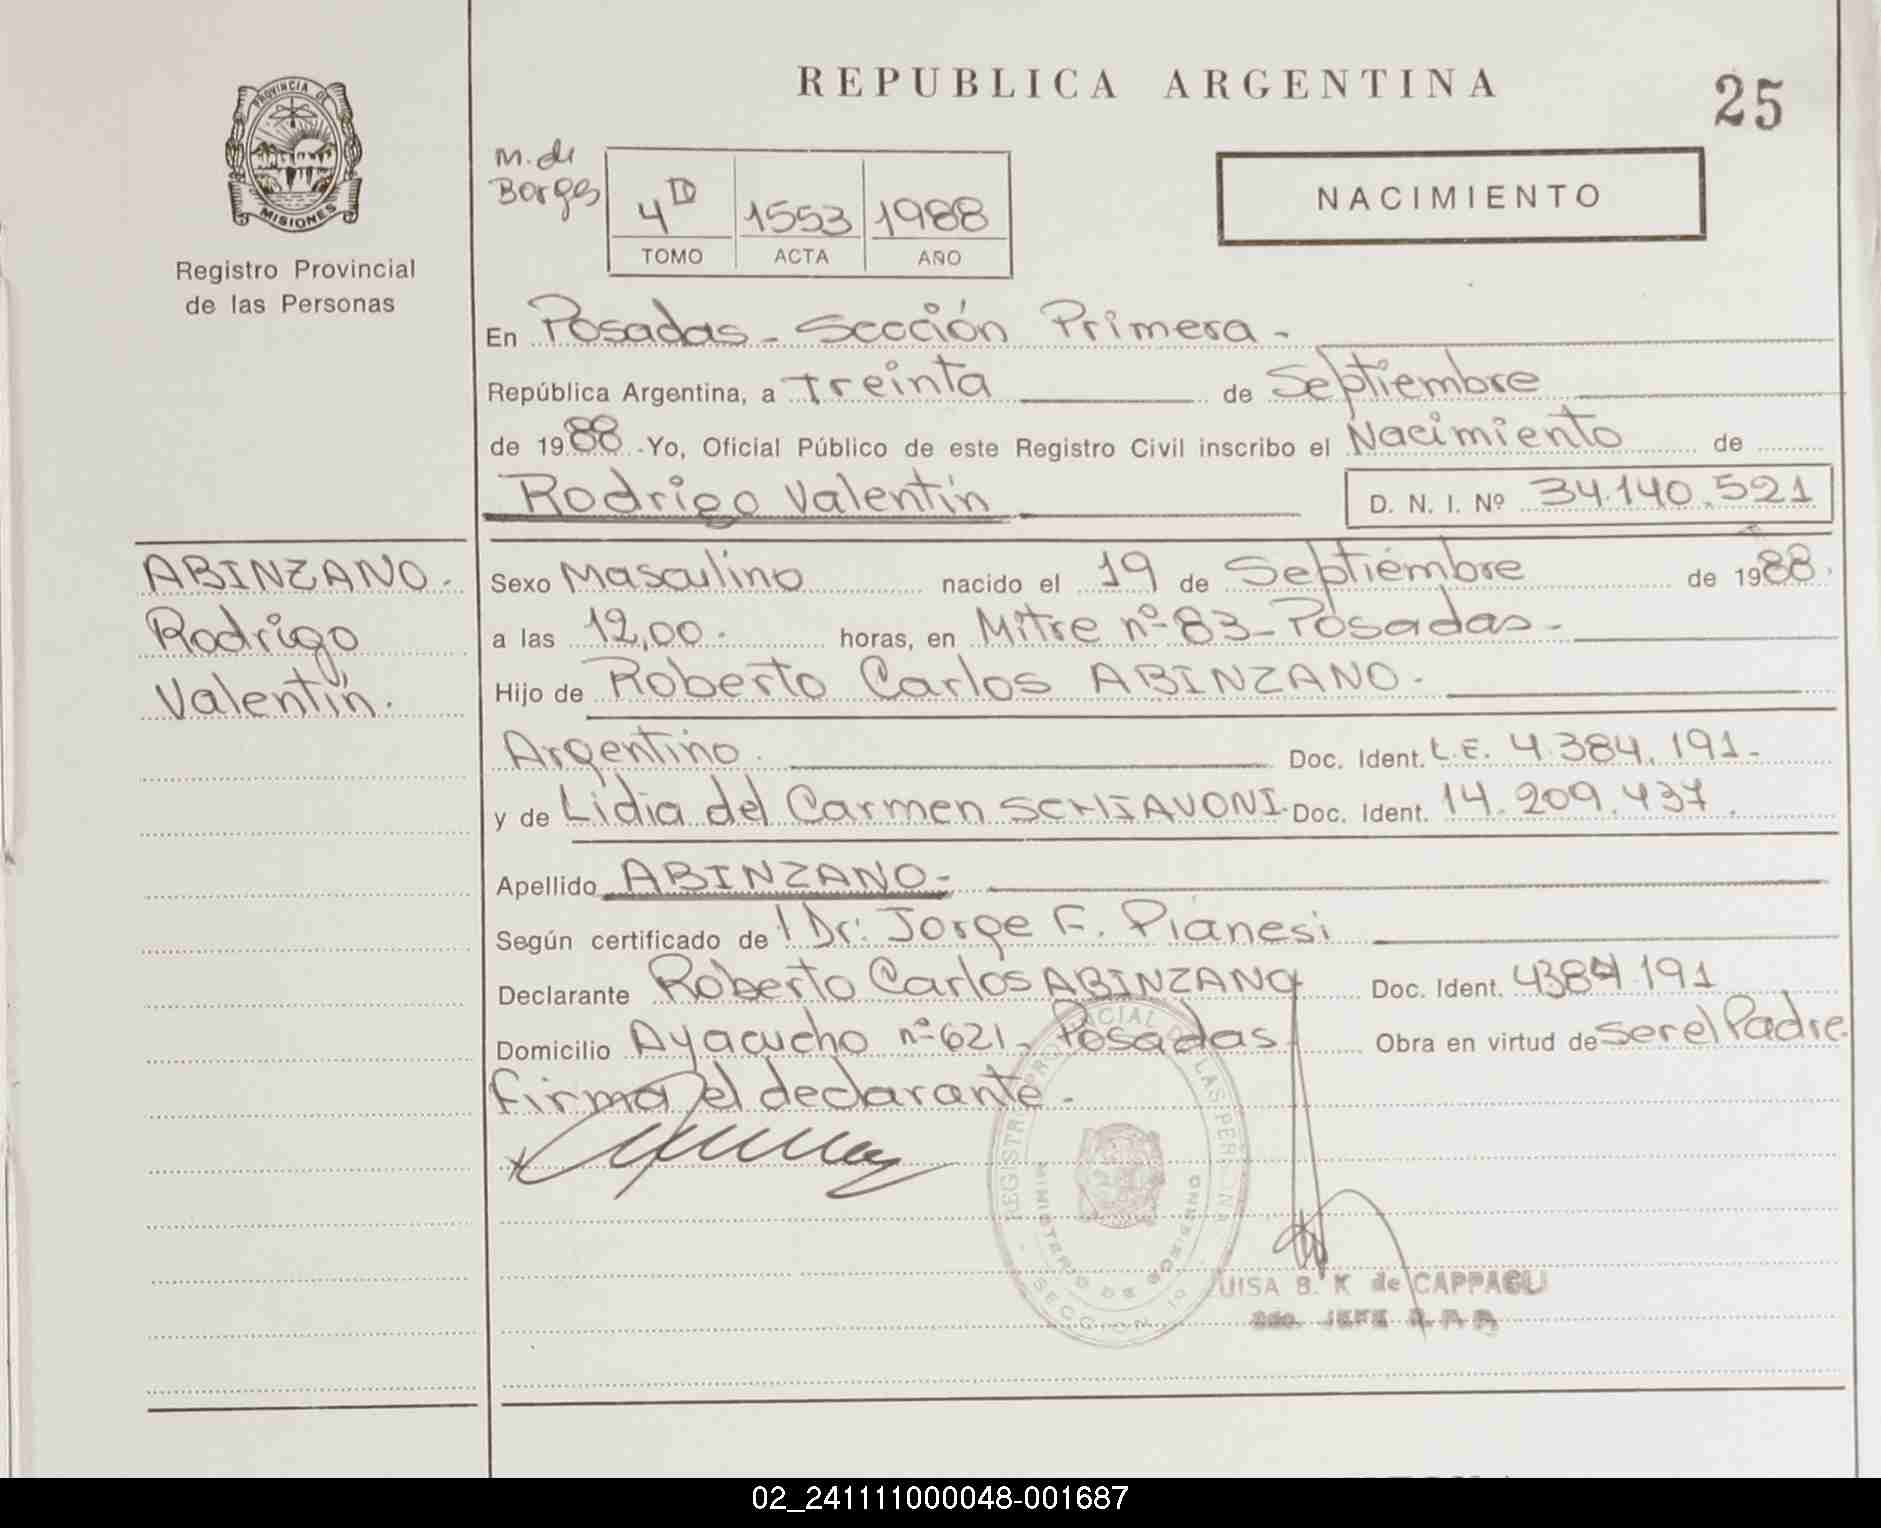 REPUBLICA ARGENTINA
25
PROVINCIA DE
MISIONES
Registro Provincial
de las Personas
M. de
Borges
4D 1553 1988
TOMO ACTA AÑO
NACIMIENTO
En Posadas - Sección Primera -
República Argentina, a Treinta de Septiembre
de 1988. Yo, Oficial Público de este Registro Civil inscribo el Nacimiento de
Rodrigo Valentín D. N. I. Nº 34.140.521
ABINZANO.
Rodrigo
Valentín.
Sexo Masculino nacido el 19 de Septiembre de 1988.
a las 12,00. horas, en Mitre nº 83 - Posadas -
Hijo de Roberto Carlos ABINZANO.
Argentino. Doc. Ident. L.E. 4.384.191-
y de Lidia del Carmen SCHIAVONI. Doc. Ident. 14.209.437.
Apellido ABINZANO-
Según certificado de Dr: Jorge F. Pianesi
Declarante Roberto Carlos ABINZANO Doc. Ident. 4384.191
Domicilio Ayacucho nº 621, Posadas Obra en virtud de ser el Padre.
firma el declarante.
REGISTRO PROVINCIAL DE LAS PERSONAS
MINISTERIO DE GOBIERNO
SECCION 1º
LUISA B. K de CAPPAGLI
JEFE
02_241111000048-001687